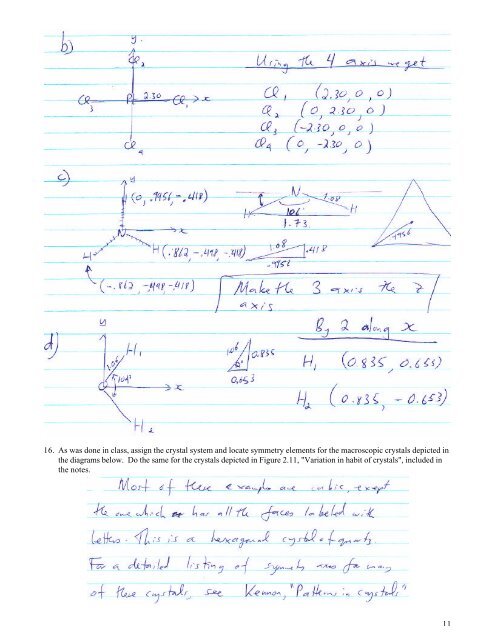 b)
y
Cl2
Using the 4 axis we get
Cl3 Pt 2.30 Cl1 > x
Cl1 (2.30, 0, 0)
Cl2 (0, 2.30, 0)
Cl3 (-2.30, 0, 0)
Cl4
Cl4 (0, -2.30, 0)
c)
y
H (0, .9956, -.418)
N
1.08
H 106° H
1.73
N x
H
H (.862, -.498, -.418)
1.08
.418
.9956
.9956
(-.862, -.498 -.418)
Make the 3 axis the z
axis
d)
y
By 2 along x
H1
1.06
104°
x
1.06
0.835
0.653
H1 (0.835, 0.653)
H2 (0.835, -0.653)
H2
16. As was done in class, assign the crystal system and locate symmetry elements for the macroscopic crystals depicted in
the diagrams below. Do the same for the crystals depicted in Figure 2.11, "Variation in habit of crystals", included in
the notes.
Most of these examples are cubic, except
the one which has all the faces labeled with
letters. This is a hexagonal crystal of quartz.
For a detailed listing of symmetry axes for many
of these crystals, see Kennon, "Patterns in crystals"
11